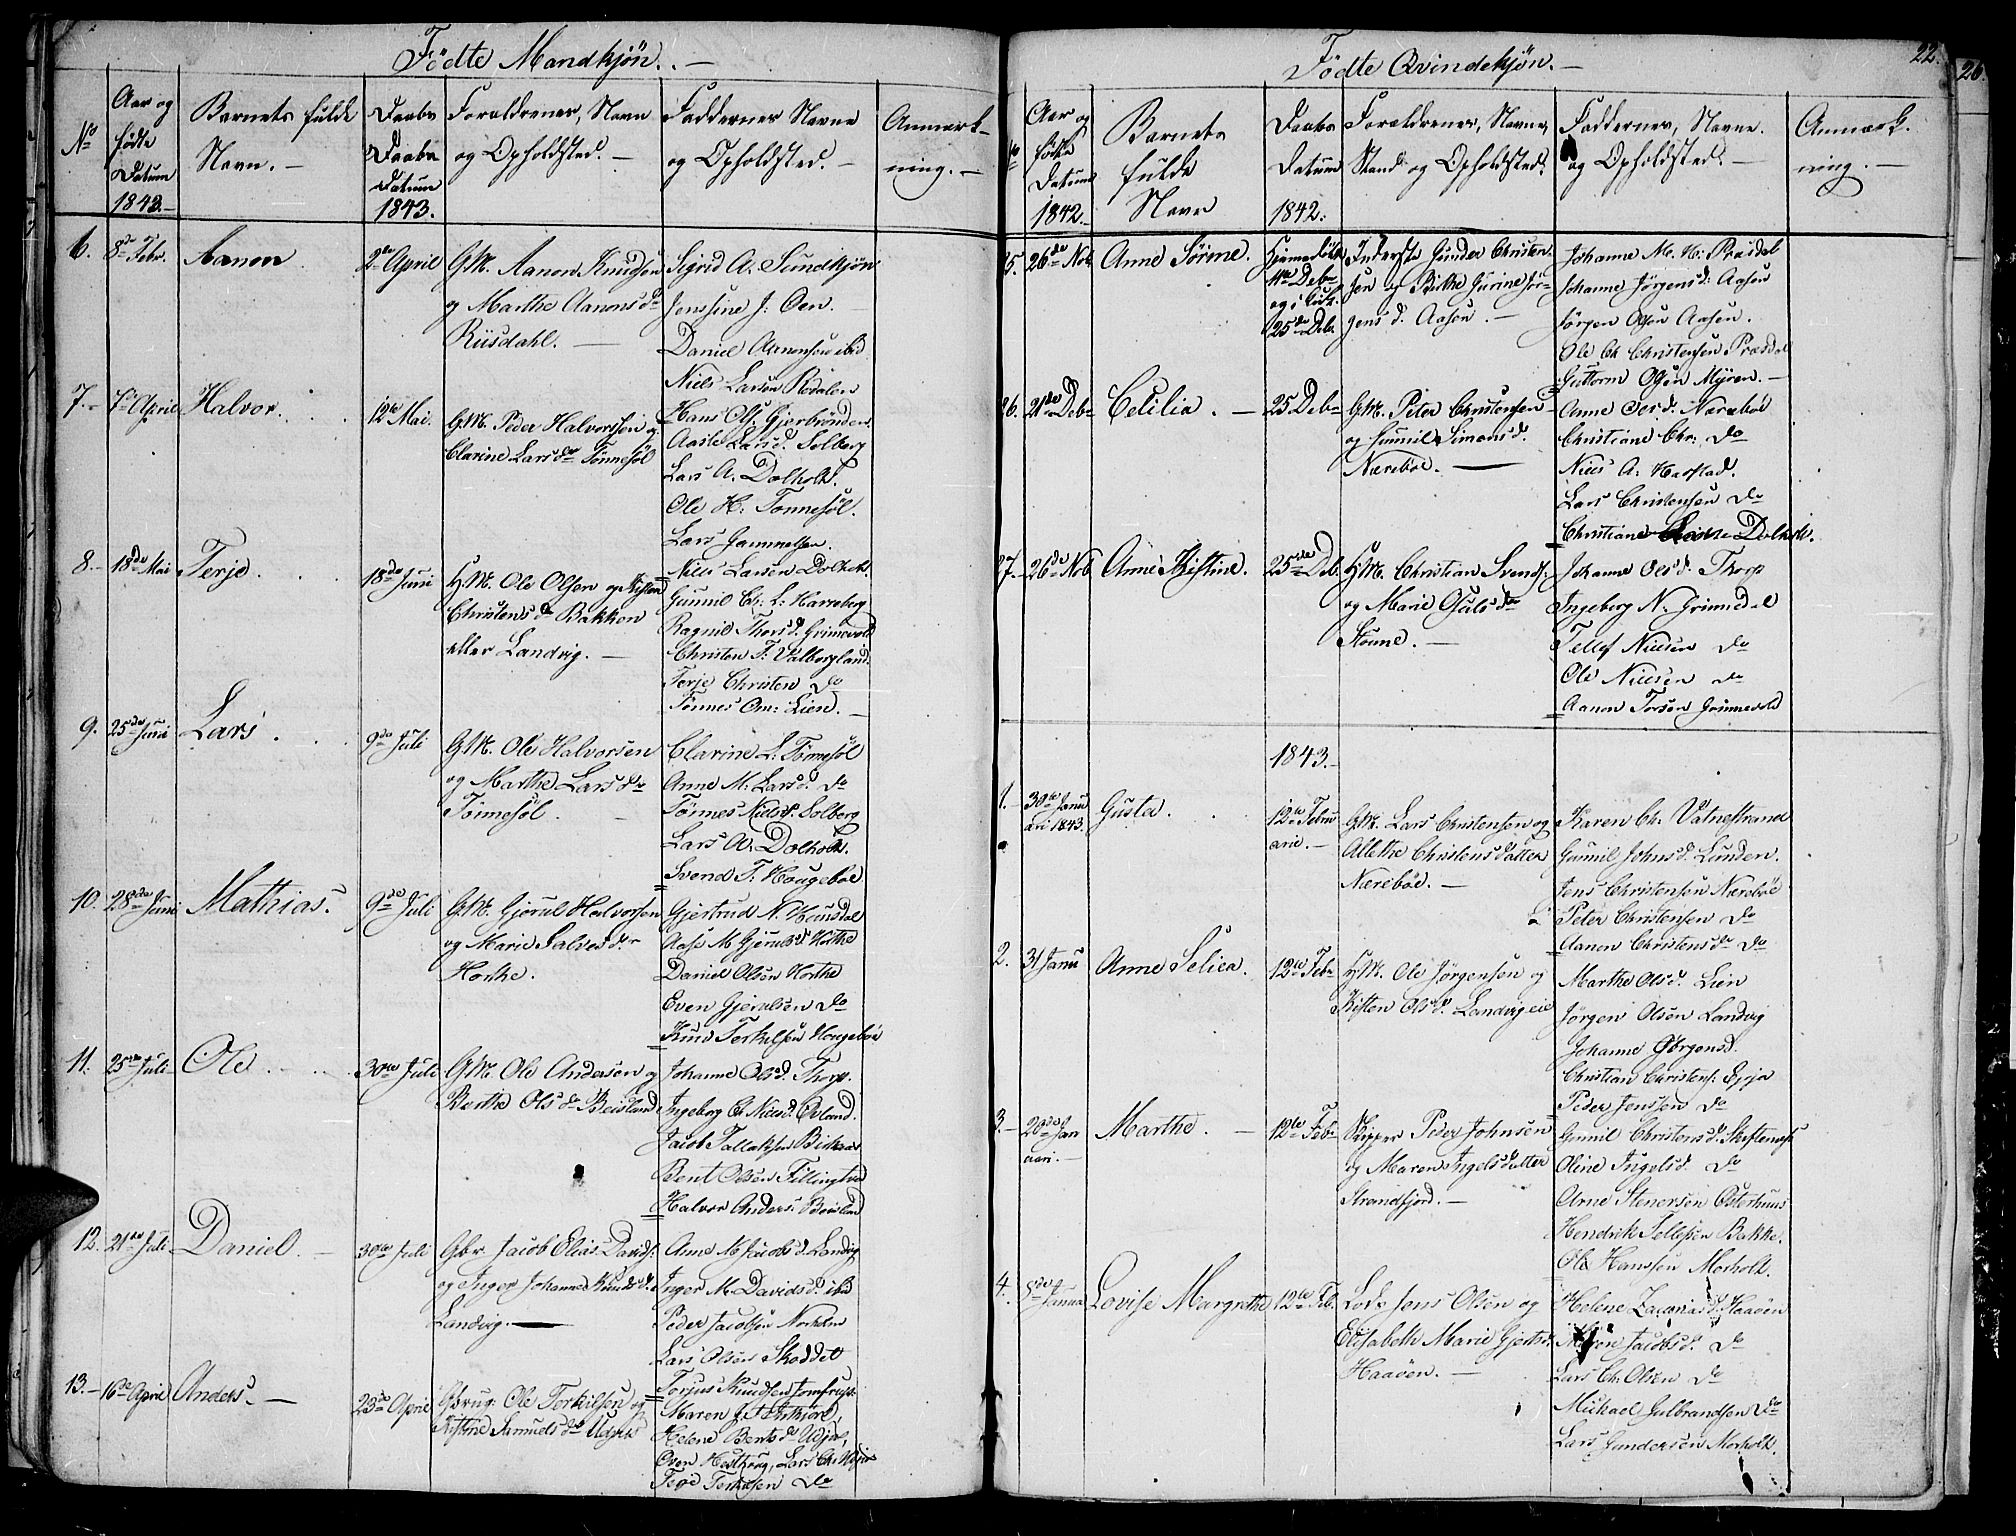 Födte Mandkjön. —
No
Aar og
fødte
Datum
1843.
Barnets fulde
Navn. —
Daabs
Datum
1843.
Forældrenes, Navn
og Opholdsted. —
Faddernes Navne
og Opholdsted. —
Anmærk-
ning. —
6. 8de Febr. Aanon 2de April
G.M. Aanon Knudsen
og Marthe Aanonsdr
Riisdahl. —
Sigrid A. Sundkjön
Jenssine J: Oen. —
Daniel Aanonsen ibid
Niels Larsen
7. 7de April Halvor. 12te Mai.
G.M. Peder Halvorssen og
Clarine Larsdr Tönnesöl
Hans Ols: Gjerbrönden
Aaste Larsd. Solberg
Lars A. Dolholt.
Ole H: Tonnesöl.
Lars Gammelsen.
8. 18de Mai Terje. 18de Juni
H.M. Ole Olsen og Kisten
Christensdr Bakken
eller Landvig. —
Niels Larsen Dolholt.
Gunnil Ch: L: Harreberg
Ragnild Thorsd. Grimevold
Christen T: Valborgland.
Terje Christen do
Tönnes Om: Lien. —
9. 25de Juni Lars. 9de Juli
G.M. Ole Halvorsen
og Marthe Larsdr
Tönnesöl. —
Clarine L: Tönnesöl
Anne M: Larsd. do
Tönnes Nielss. Solberg
Lars A. Dolholt.
Svend T. Hougeboe
10. 28de Juni Mathias. 9de Juli
G.M. Gjerul Halvorsen
og Marie Salvesdr
Horthe.
Gjertrud N.
Aase M Gjerulsd Horthe
Daniel Olsen Horthe
Even Gjerulsen do
Knud Terkelsen Hougeboe
11. 25de Juli Ole. 30te Juli
G.M. Ole Andersen og
Berthe Olsdr Beisland
Johanne Olsd. Thorp.
Ingeborg Ch Nielsd.
Jacob Tallaksen
Bent Olsen Fillingtvd
Halvor Anders. Beisland
12. 21de Juli Daniel. — 30te Juli
Gbr. Jacob Elias Davids:
og Inger Johanne Knudsd.
Landvig. —
Anne M Jacobsd. Landvig
Inger M. Davidsd. ibid
Peder Jacobsen Norholm
Lars Olsen Skoddet
Torjus Knudsen
13. 16de April Anders. — 23de April
Gbrug: Ole Terkilsen og
Kistine Samuelsdr Udjor
Maren
Helene Bentsdr Udjor,
Oven Lars Ch: Udjor
Terje Terkilsen do
Födte Qvindekjön. —
22.
26
Aar og
födte
Datum
1842.
Barnets
fulde
Navn
Daabs
Datum
1842.
Forældrenes, Navne,
Stand og Opholdsted.
Faddernes, Navne.
og Opholdsted. —
Anmærk.
ning. —
25. 26de Nob Anne Sörine. Hjemmedöbt
4de Debr
og i Kirk.
25de Deb.
Inderste Gunder Christen-
sen og Birthe Gurine Jör-
gensd. Aasen. —
Johanne M. N: Præsdal
Johanne Jörgensd. Aasen
Jörgen Olsen Aasen.
Ole Ch Christensen Præsdal
Guttorm Olsen Myren. —
26. 21de Deb Cecilia. — 25 Deb
G.M. Peter Christensen
og Gunnil Simonsd.
Næreböe. —
Anne Olsd. Næreböe
Christiane Chr: do
Niels A: Harstad.
Lars Christensen do
Christiane Dolholt.
27. 26de Nob Anne Kistine. 25de Deb.
H.M. Christian Svends.
og Marie
Stömne. —
Johanne Olsd. Thorp
Ingeborg N. Grimedal
Tellef Nielsen do
Ole Nielsen do
Aanon Torsen Grimevold
1843. —
1. 30te Janu
ari 1843. Gusta. 12te Febru
arie. —
G.M. Lars Christensen og
Allethe Christensdatter
Nærebøe. —
Karen Ch. Vatnestrand
Gunnil Johnsd. Lunden.
Jens Christensen Nærebøe
Peter Christensen do
Aanon Christensd do
2. 31 Janu Anne Selica. 12te Feb
H.M. Ole Jørgensen og
Kisten Olsd. Landvig eie
Marthe Olsd. Lien
Jörgen Olsen Landvig
Johanne Görgensd.
Christian Christens: Egeja
Peder Jenssen do
3. 20de Jan
uari. — Marthe. — 12te Feb
Skipper Peder Johnsen
og Maren Ingelsdatter
Strandfjord. —
Gunnil Christensd.
Oline Ingelsd. do
Arne Stenersen Osterhuus
Hendrik Tellefsen Bakke.
Ole Hanssen Morholt.
4. 5de Janua Lovise Margrethe 12te Feb.
Lods Jens Olsen og
Elisabeth Marie Gjertsd.
Haaöen. —
Helene Zacariasd. Haaöen
Jacobsd. do
Lars Ch. Olsen do
Michael Gulbrandsen do
Lars Gundersen Morholt.